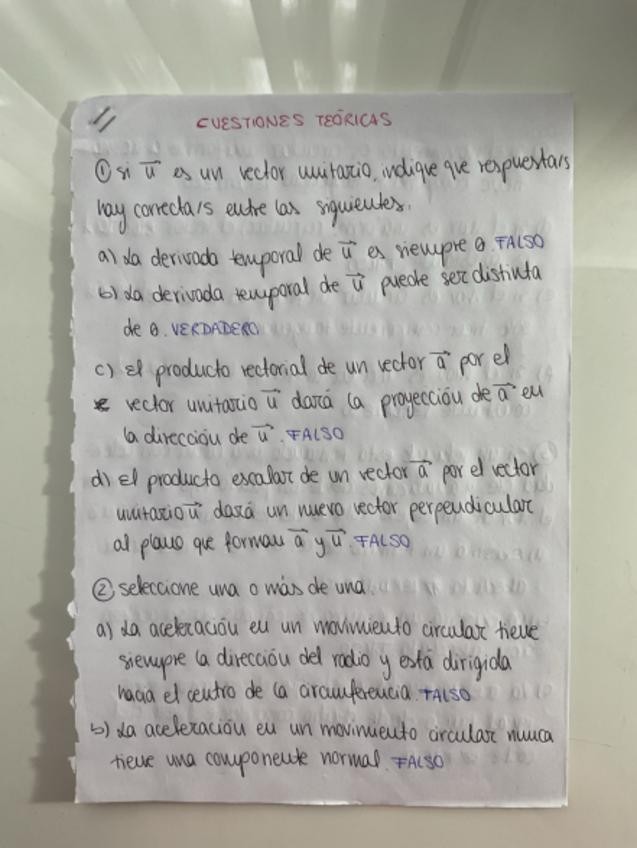 CUESTIONES TEÓRICAS
① si u⃗ es un vector unitario, indique que respuesta/s
hay correcta/s entre las siguientes.
a) La derivada temporal de u⃗ es siempre 0. FALSO
b) La derivada temporal de u⃗ puede ser distinta
de 0. VERDADERO
c) El producto vectorial de un vector a⃗ por el
vector unitario u⃗ dará la proyección de a⃗ en
la dirección de u⃗. FALSO
d) El producto escalar de un vector a⃗ por el vector
unitario u⃗ dará un nuevo vector perpendicular
al plano que forman a⃗ y u⃗. FALSO
② seleccione una o más de una.
a) La aceleración en un movimiento circular tiene
siempre la dirección del radio y está dirigida
hacia el centro de la circunferencia. FALSO
b) La aceleración en un movimiento circular nunca
tiene una componente normal. FALSO